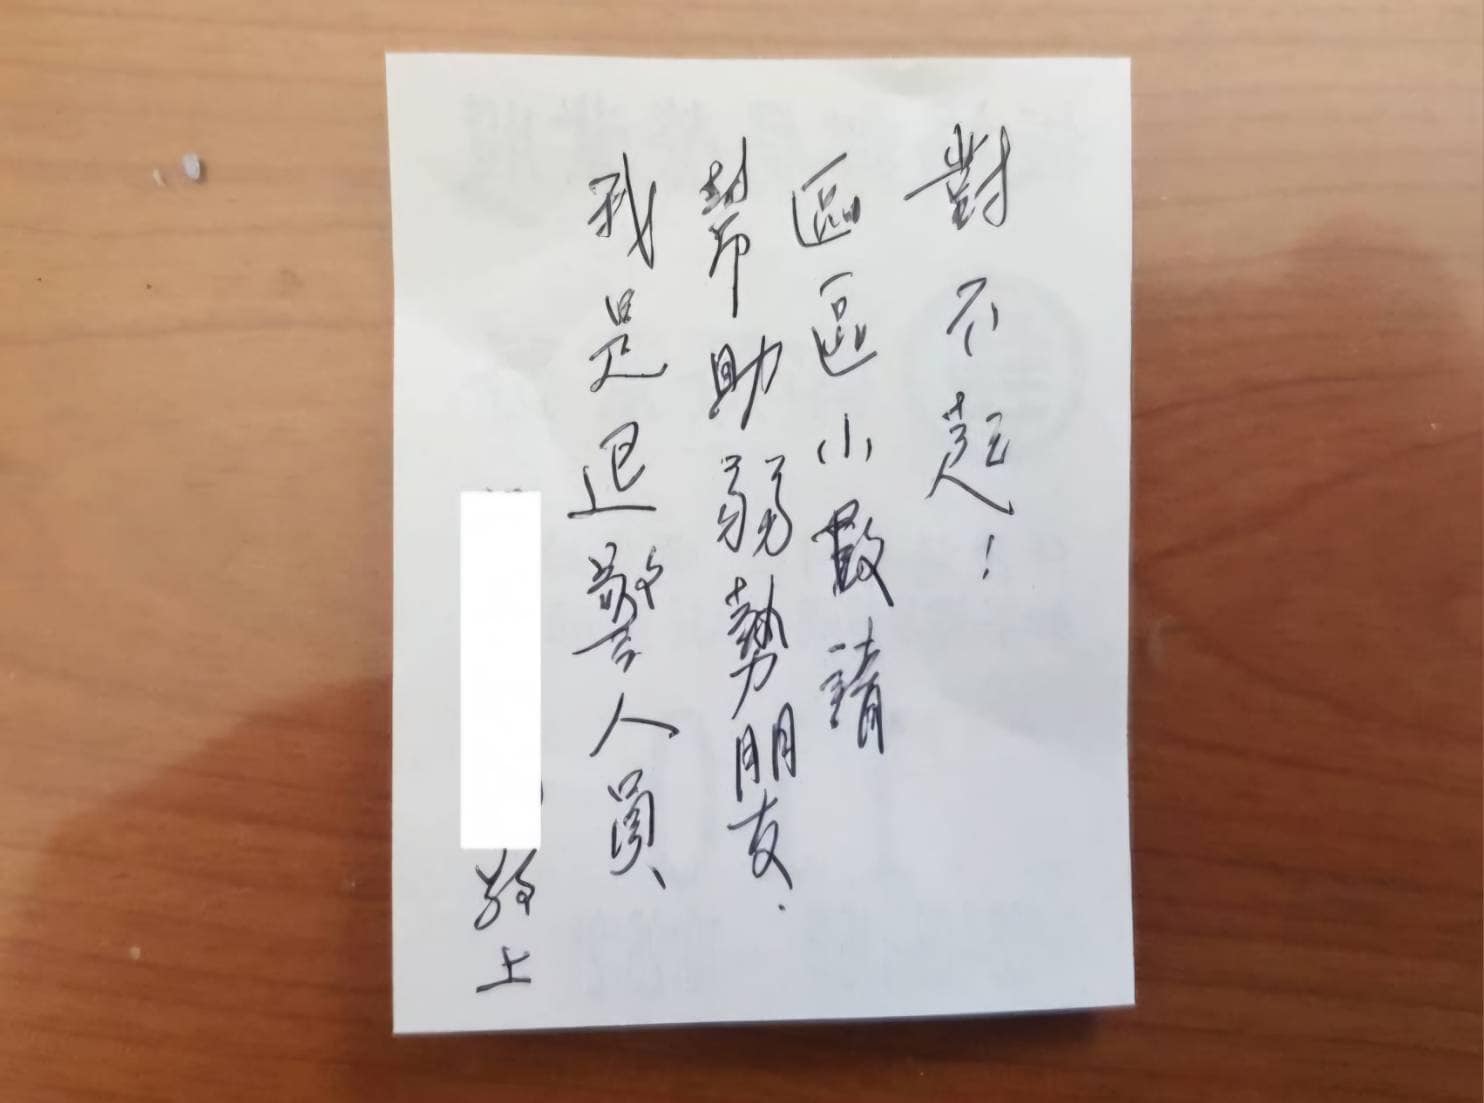 對不起！
區區小數請
幫助弱勢朋友．
我是退警人員、
敬上